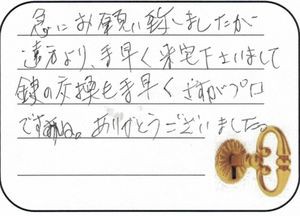 急にお願い致しましたが
遠方より、手早く来宅下さいまして
鍵の交換も手早く さすがプロ
ですね。ありがとうございました。